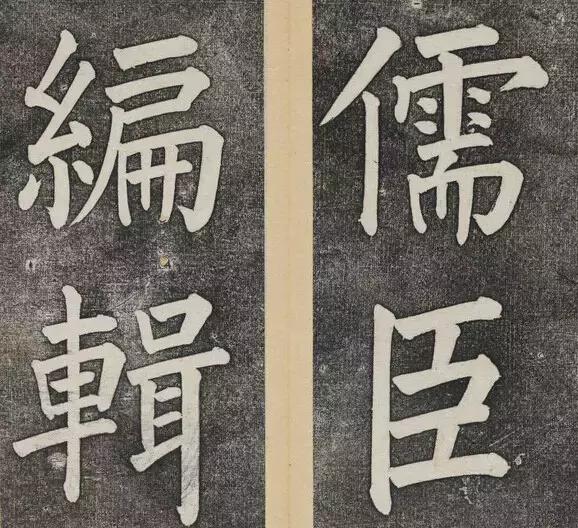 儒臣
編輯